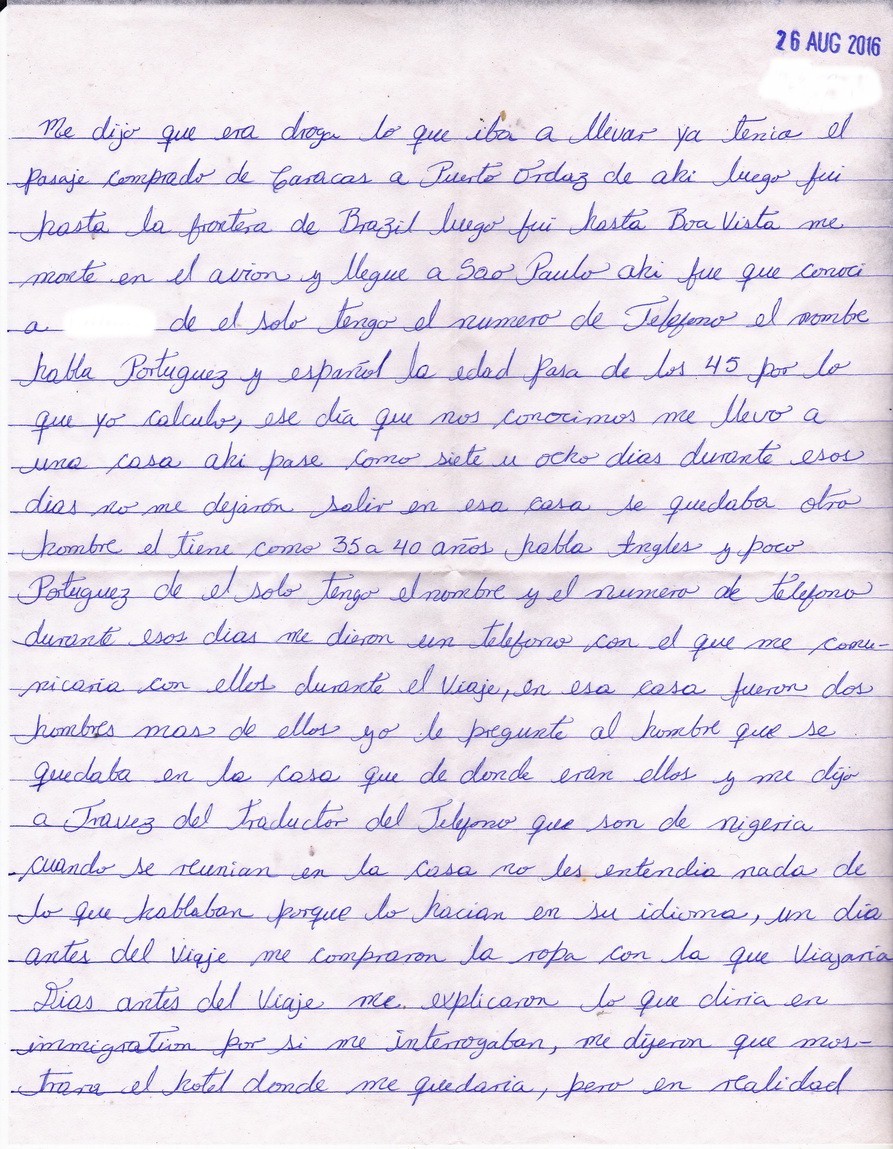 26 AUG 2016
Me dijo que era droga lo que iba a llevar ya tenia el
pasaje comprado de Caracas a Puerto Ordaz de aki luego fui
hasta la frontera de Brazil luego fui hasta Boa Vista me
monte en el avion y llegue a Sao Paulo aki fue que conoci
a de el solo tengo el numero de Telefono el nombre
habla Portuguez y español la edad pasa de los 45 por lo
que yo calculo, ese día que nos conocimos me llevo a
una casa aki pase como siete u ocho dias durante esos
dias no me dejarón salir en esa casa se quedaba otro
hombre el tiene como 35 a 40 años habla Ingles y poco
Portuguez de el solo tengo el nombre y el numero de telefono
durante esos dias me dieron un telefono con el que me comu-
nicaria con ellos durante el Viaje, en esa casa fueron dos
hombres mas de ellos yo le pregunte al hombre que se
quedaba en la casa que de donde eran ellos y me dijo
a Travez del traductor del Telefono que son de nigeria
cuando se reunian en la casa no les entendia nada de
lo que hablaban porque lo hacian en su idioma, un dia
antes del Viaje me compraron la ropa con la que Viajaria
Dias antes del Viaje me explicaron lo que diria en
immigration por si me interrogaban, me dijeron que mos-
trara el hotel donde me quedaria, pero en realidad